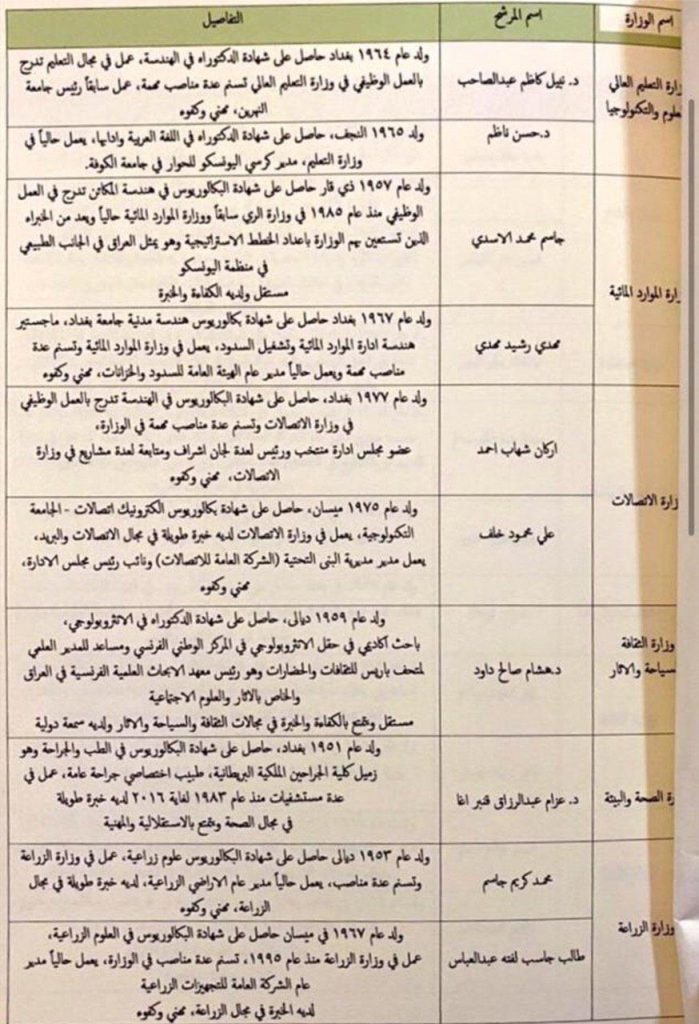 اسم الوزارة
اسم المرشح
التفاصيل
زارة التعليم العالي
علوم والتكنولوجيا
د. نبيل كاظم عبدالصاحب
ولد عام ١٩٦٤ بغداد حاصل على شهادة الدكتوراه في الهندسة، عمل في مجال التعليم تدرج
بالعمل الوظيفي في وزارة التعليم العالي تسنم عدة مناصب مهمة، عمل سابقاً رئيس جامعة
النهرين، مهني وكفوه
د.حسن ناظم
ولد ١٩٦٥ النجف، حاصل على شهادة الدكتوراه في اللغة العربية وادابها، يعمل حالياً في
وزارة التعليم، مدير كرسي اليونسكو للحوار في جامعة الكوفة.
زارة الموارد المائية
جاسم محمد الاسدي
ولد عام ١٩٥٧ ذي قار حاصل على شهادة البكالوريوس في هندسة المكائن تدرج في العمل
الوظيفي منذ عام ١٩٨٥ في وزارة الري سابقاً ووزارة الموارد المائية حالياً ويعد من الخبراء
الذين تستعين بهم الوزارة باعداد الخطط الاستراتيجية وهو يمثل العراق في الجانب الطبيعي
في منظمة اليونسكو
مستقل ولديه الكفاءة والخبرة
مهدي رشيد مهدي
ولد عام ١٩٦٧ بغداد حاصل على شهادة بكالوريوس هندسة مدنية جامعة بغداد، ماجستير
هندسة ادارة الموارد المائية وتشغيل السدود، يعمل في وزارة الموارد المائية وتسنم عدة
مناصب مهمة ويعمل حالياً مدير عام الهيئة العامة للسدود والخزانات، مهني وكفوه
زارة الاتصالات
اركان شهاب احمد
ولد عام ١٩٧٧ بغداد، حاصل على شهادة البكالوريوس في الهندسة تدرج بالعمل الوظيفي
في وزارة الاتصالات وتسنم عدة مناصب مهمة في الوزارة،
عضو مجلس ادارة منتخب ورئيس لعدة لجان اشراف ومتابعة لعدة مشاريع في وزارة
الاتصالات، مهني وكفوه
علي محمود خلف
ولد عام ١٩٧٥ ميسان، حاصل على شهادة بكالوريوس الكترونيك اتصالات - الجامعة
التكنولوجية، يعمل في وزارة الاتصالات لديه خبرة طويلة في مجال الاتصالات والبريد،
يعمل مدير مديرية البنى التحتية (الشركة العامة للاتصالات) ونائب رئيس مجلس الادارة،
مهني وكفوه
وزارة الثقافة
سياحة والاثار
د.هشام صالح داود
ولد عام ١٩٥٩ ديالى، حاصل على شهادة الدكتوراه في الانثروبولوجي،
باحث اكاديمي في حقل الانثروبولوجي في المركز الوطني الفرنسي ومساعد للمدير العلمي
لمتحف باريس للثقافات والحضارات وهو رئيس معهد الابحاث العلمية الفرنسية في العراق
والخاص بالاثار والعلوم الاجتماعية
مستقل ويتمتع بالكفاءة والخبرة في مجالات الثقافة والسياحة والاثار ولديه سمعة دولية
رة الصحة والبيئة
د. عزام عبدالرزاق قنبر اغا
ولد عام ١٩٥١ بغداد، حاصل على شهادة البكالوريوس في الطب والجراحة وهو
زميل كلية الجراحين الملكية البريطانية، طبيب اختصاصي جراحة عامة، عمل في
عدة مستشفيات منذ عام ١٩٨٣ لغاية ٢٠١٦ لديه خبرة طويلة
في مجال الصحة ويتمتع بالاستقلالية والمهنية
وزارة الزراعة
محمد كريم جاسم
ولد عام ١٩٥٣ ديالى حاصل على شهادة البكالوريوس علوم زراعية، عمل في وزارة الزراعة
وتسنم عدة مناصب، يعمل حالياً مدير عام الاراضي الزراعية، لديه خبرة طويلة في مجال
الزراعة، مهني وكفوه
طالب جاسب لفته عبدالعباس
ولد عام ١٩٦٧ في ميسان حاصل على شهادة البكالوريوس في العلوم الزراعية،
عمل في وزارة الزراعة منذ عام ١٩٩٥، تسنم عدة مناصب في الوزارة، يعمل حالياً مدير
عام الشركة العامة للتجهيزات الزراعية
لديه الخبرة في مجال الزراعة، مهني وكفوه